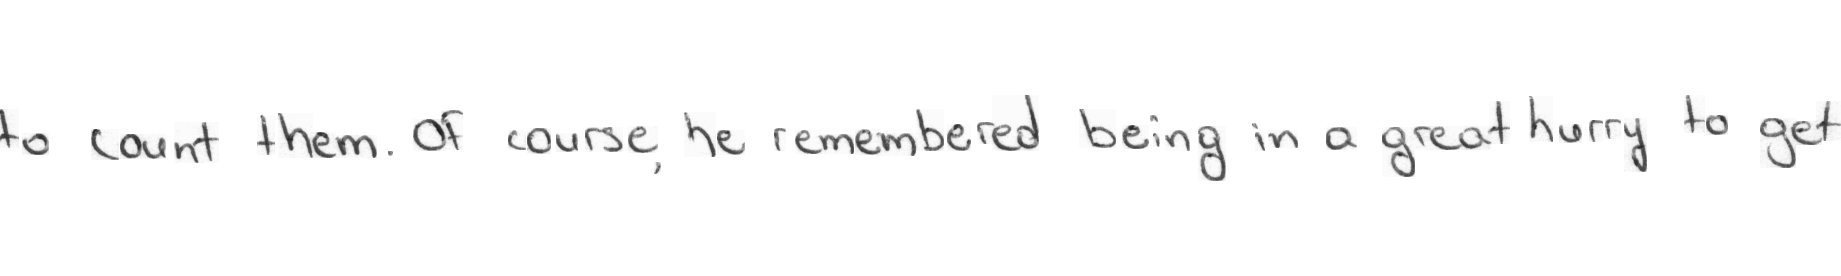 to count them. Of course, he remembered being in a great hurry to get